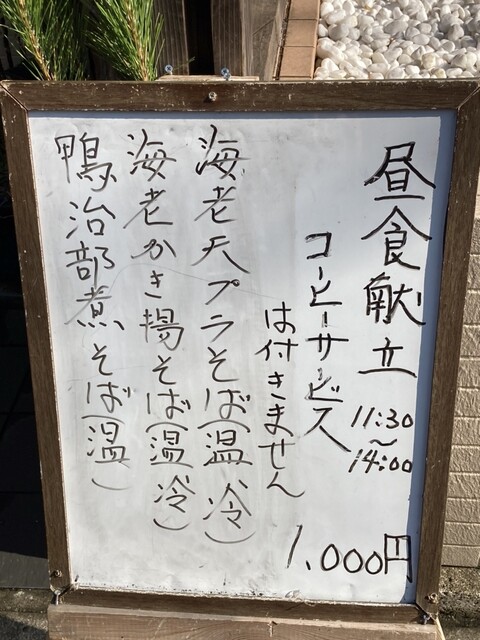 昼食献立 11:30～14:00
コーヒーサービス
は付きません
1,000円
海老天プラそば(温、冷)
海老かき揚そば(温 冷)
鴨治部煮そば(温)